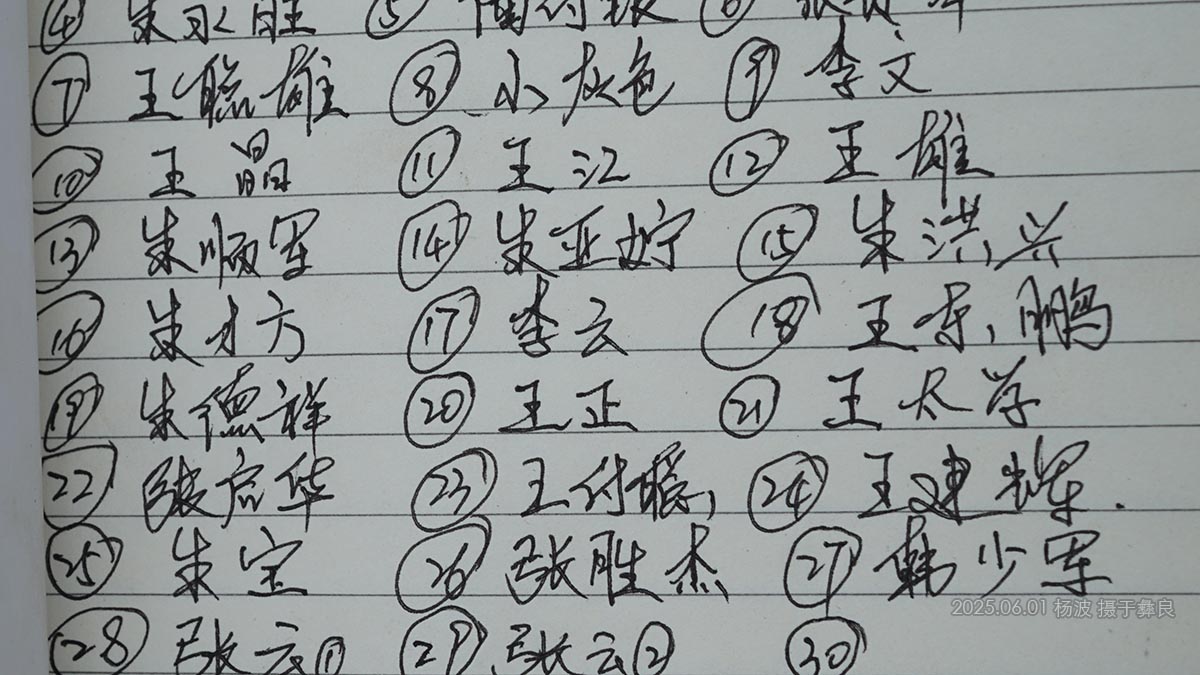 ④ 朱永旺 ⑤ ⑥
⑦ 王聪雄 ⑧ 小灰色 ⑨ 李文
⑩ 王晶 ⑪ 王江 ⑫ 王雄
⑬ 朱顺军 ⑭ 朱亚婷 ⑮ 朱洪兴
⑯ 朱才方 ⑰ 李云 ⑱ 王 鹏
⑲ 朱德祥 ⑳ 王正 ㉑ 王太学
㉒ 张启华 ㉓ 王付聪 ㉔ 王建辉.
㉕ 朱宝 ㉖ 张胜杰 ㉗ 韩少军
㉘ 张云① ㉙ 张云② ㉚
2025.06.01 杨波 摄于彝良